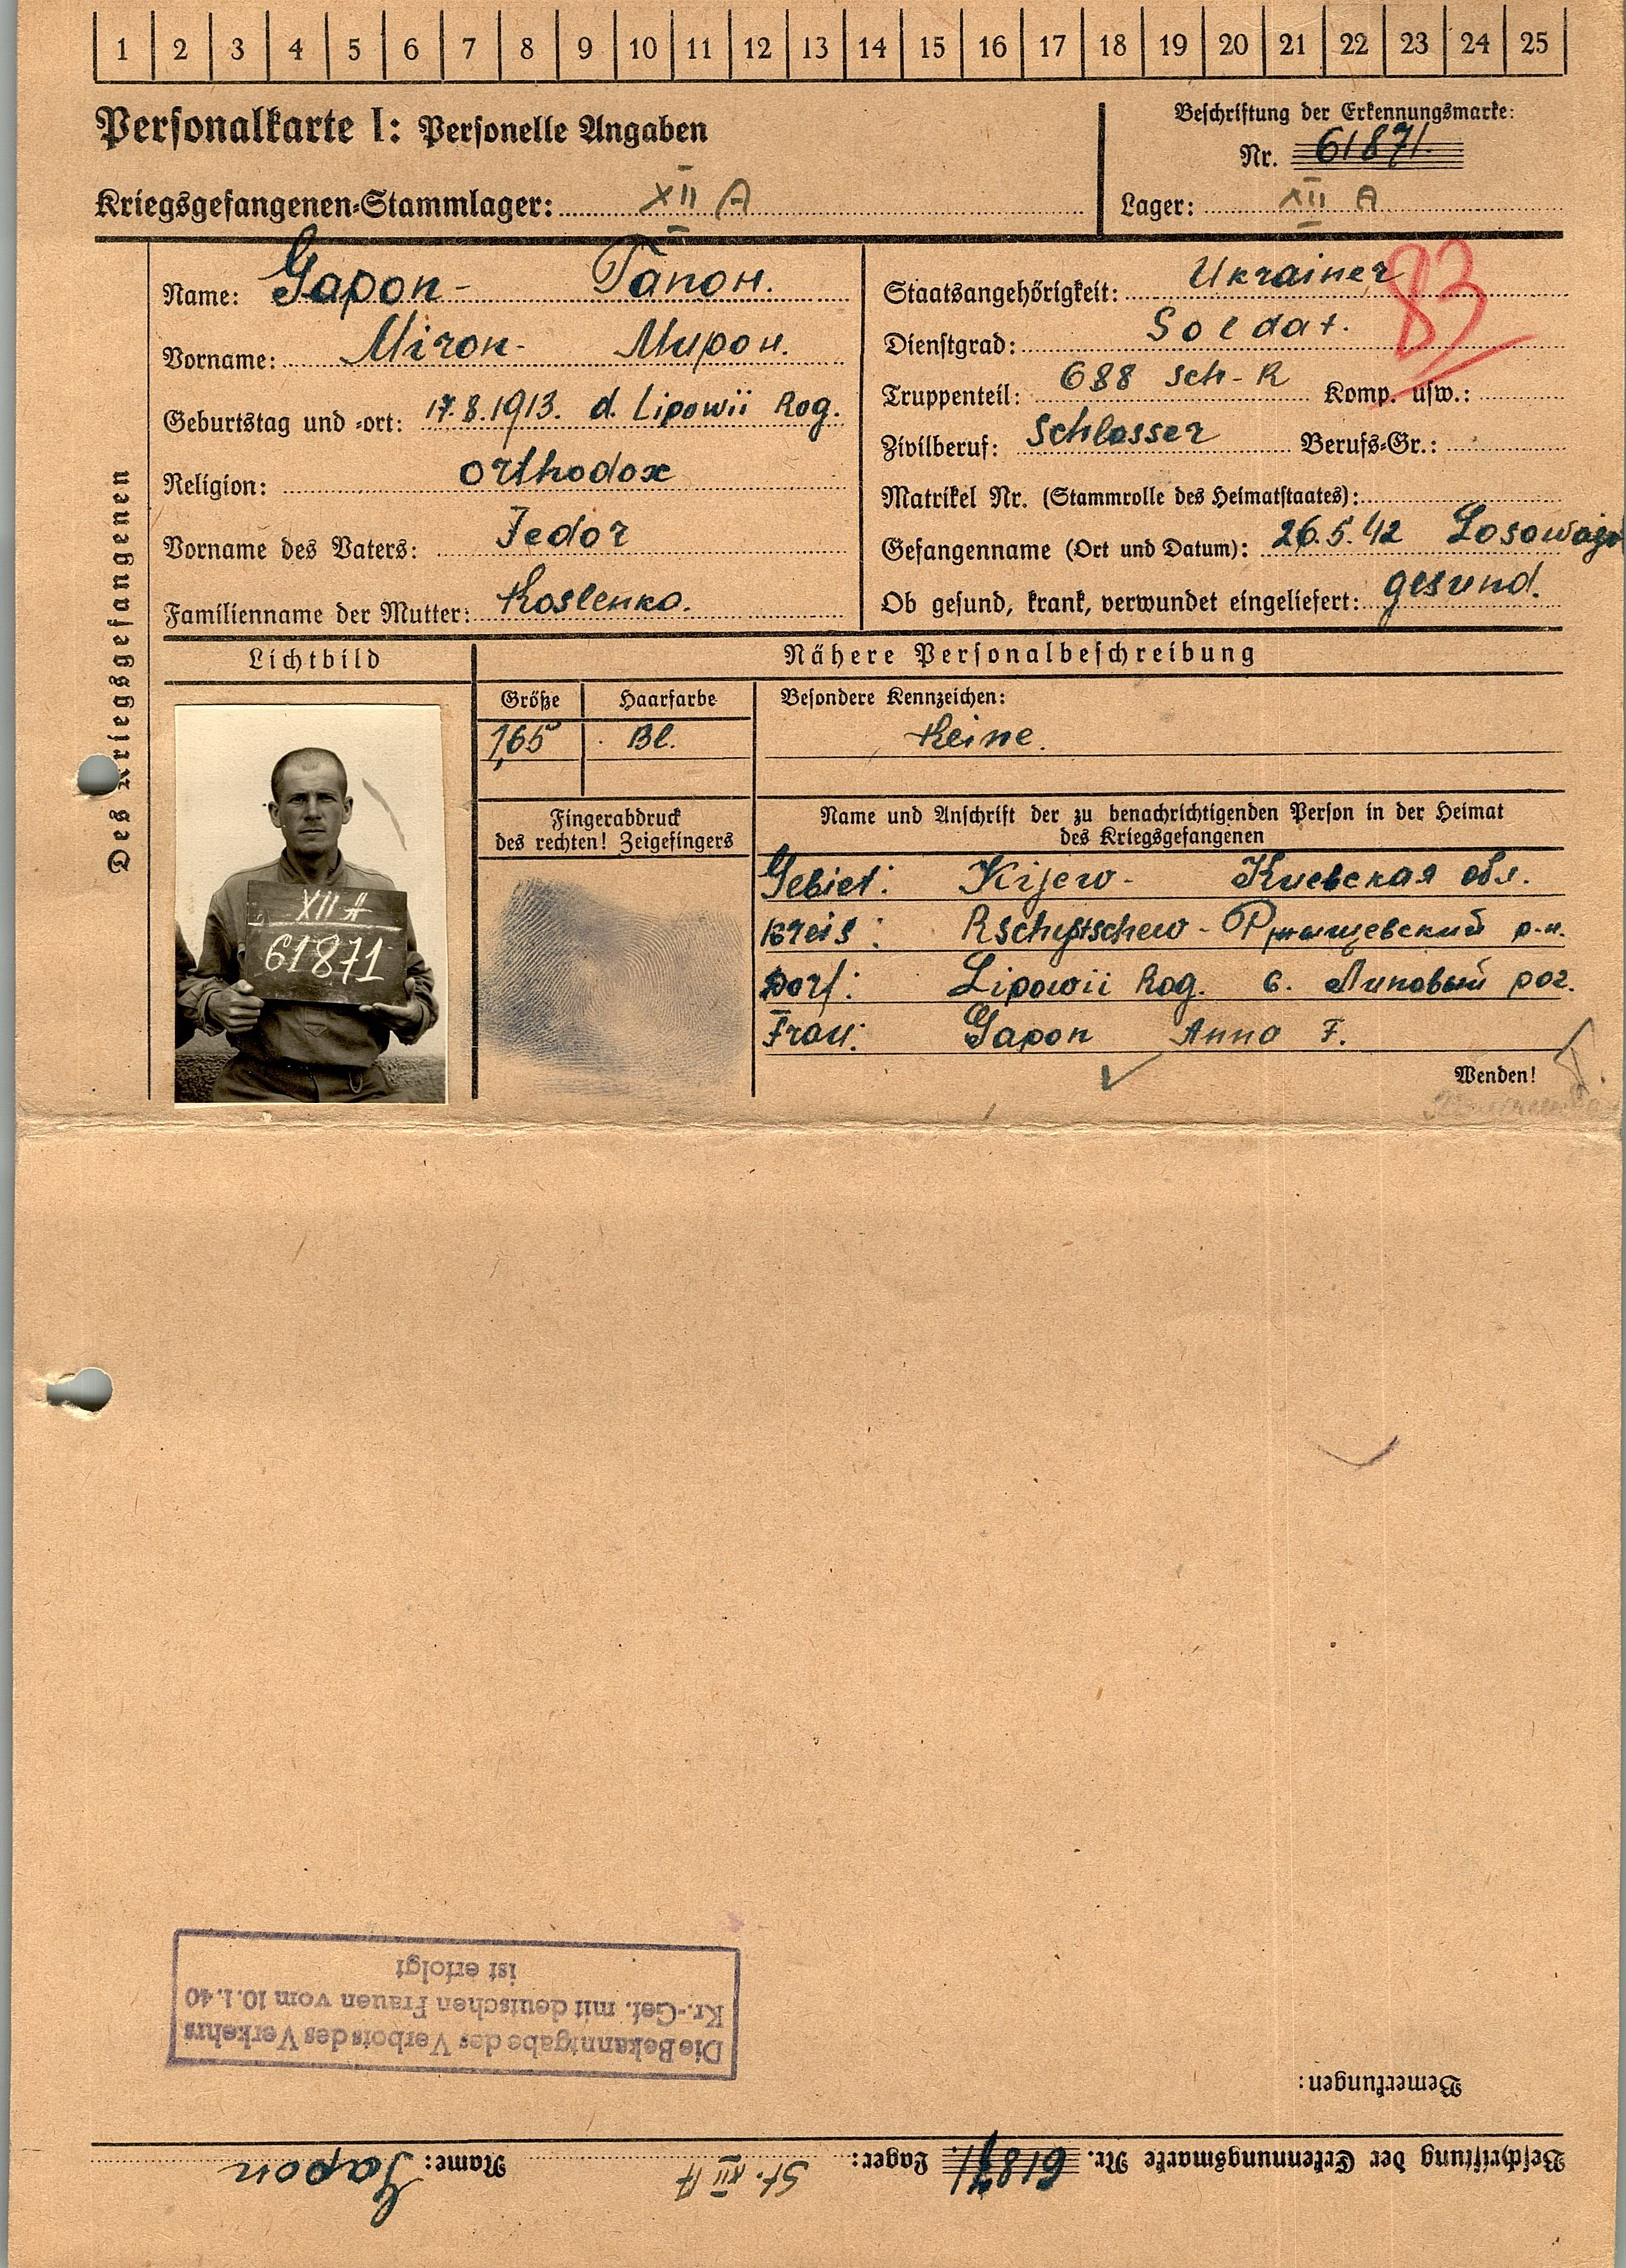 1 2 3 4 5 6 7 8 9 10 11 12 13 14 15 16 17 18 19 20 21 22 23 24 25
Personalkarte I: Personelle Angaben
Beschriftung der Erkennungsmarke:
Nr. 61871.
Kriegsgefangenen-Stammlager: XII A
Lager: XII A
Des Kriegsgefangenen
Name: Gapon- Гапон.
Vorname: Miron- Мирон.
Geburtstag und -ort: 17.8.1913. d. Lipowii Rog.
Religion: orthodox
Vorname des Vaters: Fedor
Familienname der Mutter: Koslenko.
Staatsangehörigkeit: Ukrainer
83
Dienstgrad: Soldat.
Truppenteil: 688 Sch-R Komp. usw.:
Zivilberuf: Schlosser Berufs-Gr.:
Matrikel Nr. (Stammrolle des Heimatstaates):
Gefangenname (Ort und Datum): 26.5.42 Losowaja
Ob gesund, krank, verwundet eingeliefert: gesund.
Lichtbild
Nähere Personalbeschreibung
Größe Haarfarbe Besondere Kennzeichen:
1,65 Bl. Keine.
Fingerabdruck
des rechten! Zeigefingers
Name und Anschrift der zu benachrichtigenden Person in der Heimat
des Kriegsgefangenen
Gebiet: Kijew- Киевская обл.
Kreis: Rschystschew- Ржищевский р-н.
Dorf: Lipowii Rog. с. Липовый рог.
Frau: Gapon Anna F.
XII A
61871
Wenden!
Die Bekanntgabe des Verbots des Verkehrs
Kr.-Gef. mit deutschen Frauen vom 10.1.40
ist erfolgt
Bemerkungen:
Beschriftung der Erkennungsmarke Nr. 61871. Lager: St. XII A Name: Gapon